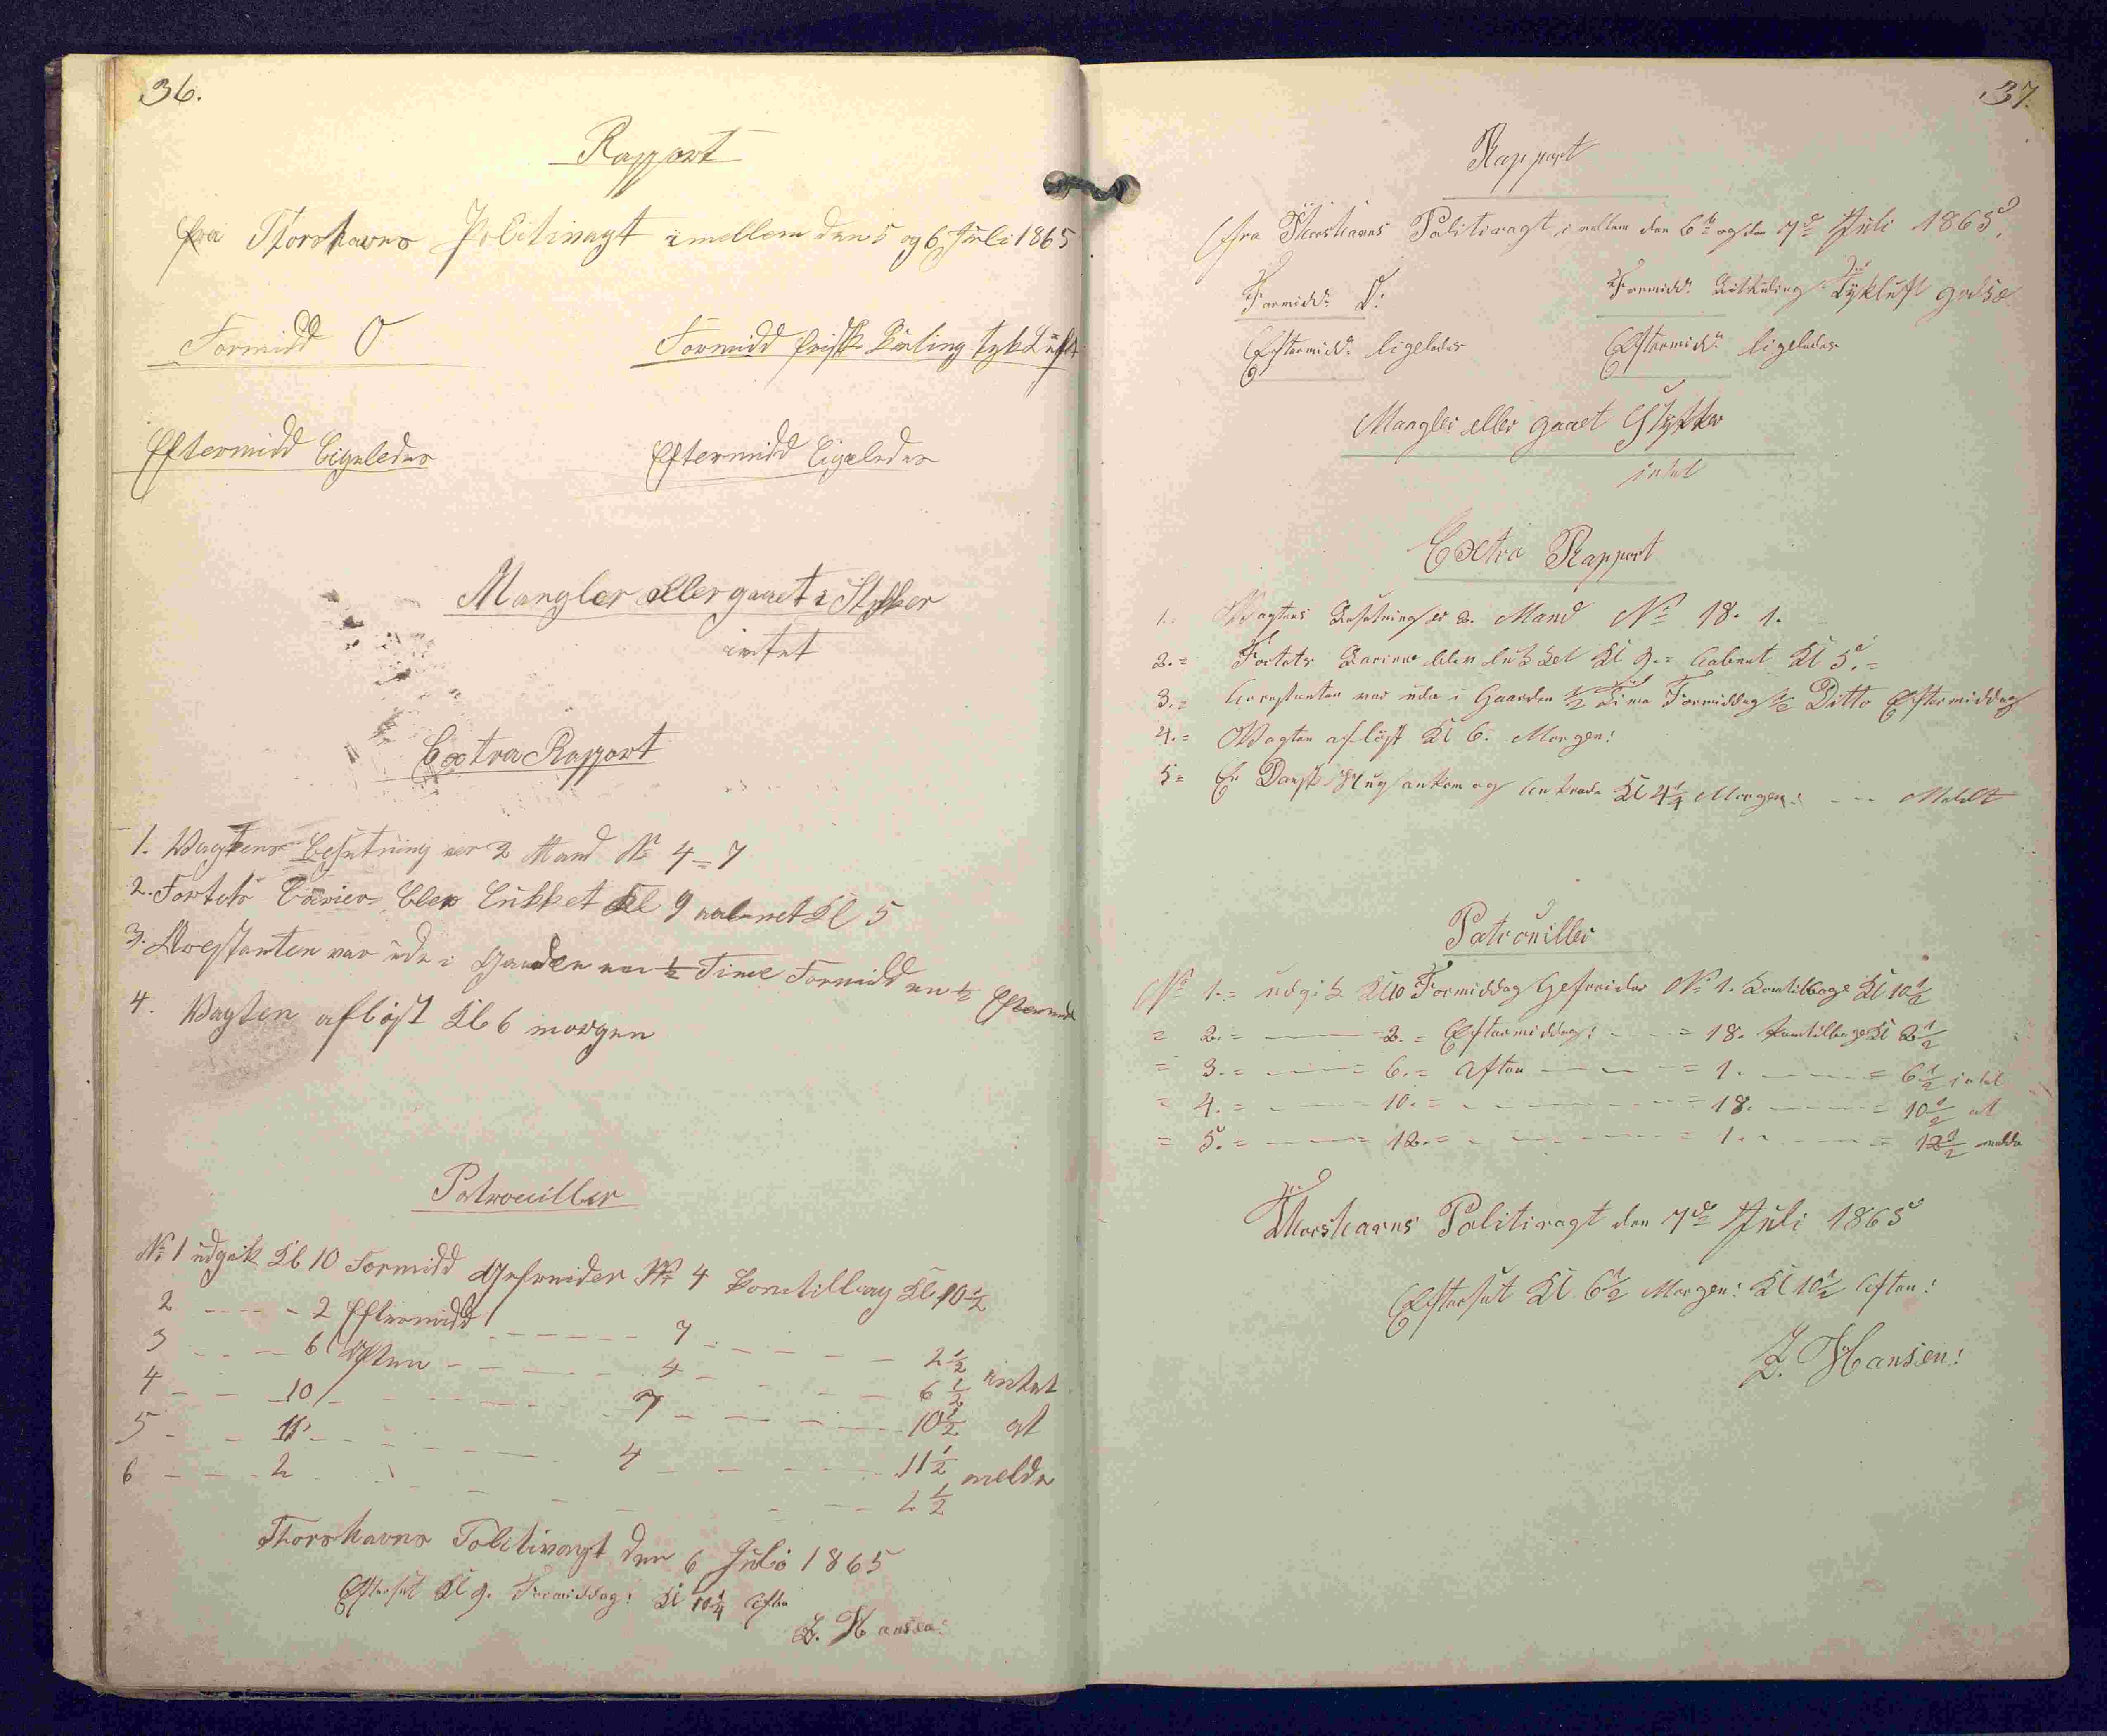 36.
Rapport
fra Thorshavns Politivagt imellem den 5 og 6 Juli 1865
Formidd O Formidd frisk Kuling tyk Luft
Eftermidd ligeledes Eftermidd ligeledes
Mangler eller gaaet i Stykker
intet
Extra Rapport
1. Vagtens besetning var 2 Mand № 4 = 7
2. Fortets barier blev lukket Kl 9 aabnet Kl 5
3. Arestanten var ude i Gaarden en ½ Time Formidd en ½ Eftermidd
4. Vagten afløst Kl 6 morgen
Patrouiller
№ 1 udgik Kl 10 Formidd Gefreider № 4 komtilbag Kl 10½
2 - - - - 2 Eftermidd - - - - - 7 - - - - - 2½
3 - - - 6 Aften - - - - - 4 - - - - - 6½ intet
4 - - 10 - - - - - 7 - - - - - 10½ at
5 - - 11 - - - - - 4 - - - - - 11½ melde
6 - - - 2 - - - - - - - 2½
Thorshavns Politivagt den 6 Juli 1865
Efterset Kl 9. Formiddag: Kl 10¼ Aften
Z. Hansen:
37.
Rapport
fra Thorshavns Politivagt, imellem den 6te og den 7de Juli 1865.
Formidd: O: Formidd: Kuling Tykluft
Eftermidd: ligeledes Eftermidd: ligeledes
Mangler eller gaaet Stykker
intet
Extra Rapport
1. Vagtens Besetning er 2. Mand № 18. 1.
2. = Fortets Bariere blev lukket Kl 9. = aabnet Kl 5. =
3. = Arrestanten var ude i Gaarden ½ Time Formiddag ½ Ditto Eftermiddag
4. = Vagten afløst Kl 6. Morgen:
5 = En Dansk ankom og Ankrede Kl 4¼ Morgen: - - - Meldt
Patrouiller
№ 1. = udgik Kl 10 Formiddag Gefreider № 1. komtilbage Kl 10½
= 2. = - - - 2. = Eftermiddag: - - = 18. komtilbage Kl 2½
= 3. = - - - 6. = Aften - - - = 1. - - - = 6½ intet
= 4. = - - - 10. = - - - = 18. - - - = 10½ at
= 5. = - - - 12. = - - - = 1. - - - = 12½ melde
Thorshavns Politivagt den 7de Juli 1865
Efterset Kl 6½ Morgen: Kl 10½ Aften:
Z. Hansen: